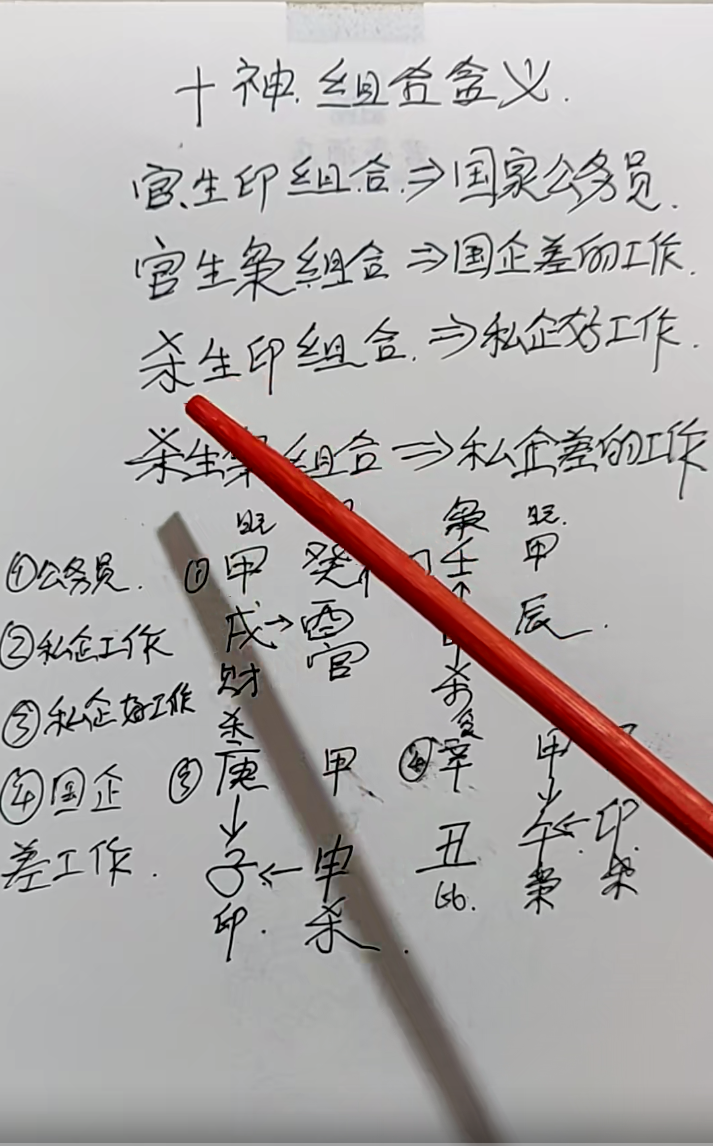 十神.组合含义.
官生印组合.⇒国家公务员.
官生枭组合⇒国企差的工作.
杀生印组合.⇒私企好工作.
杀生枭组合⇒私企差的工作
旺 枭 旺.
①公务员. ①甲 癸 壬 甲
②私企工作 戌→酉 辰.
财 官 杀
③私企好工作
杀
④国企 ③庚 甲 ④辛 甲
差工作. 子←申 丑 午←卯
印. 杀. 比. 枭